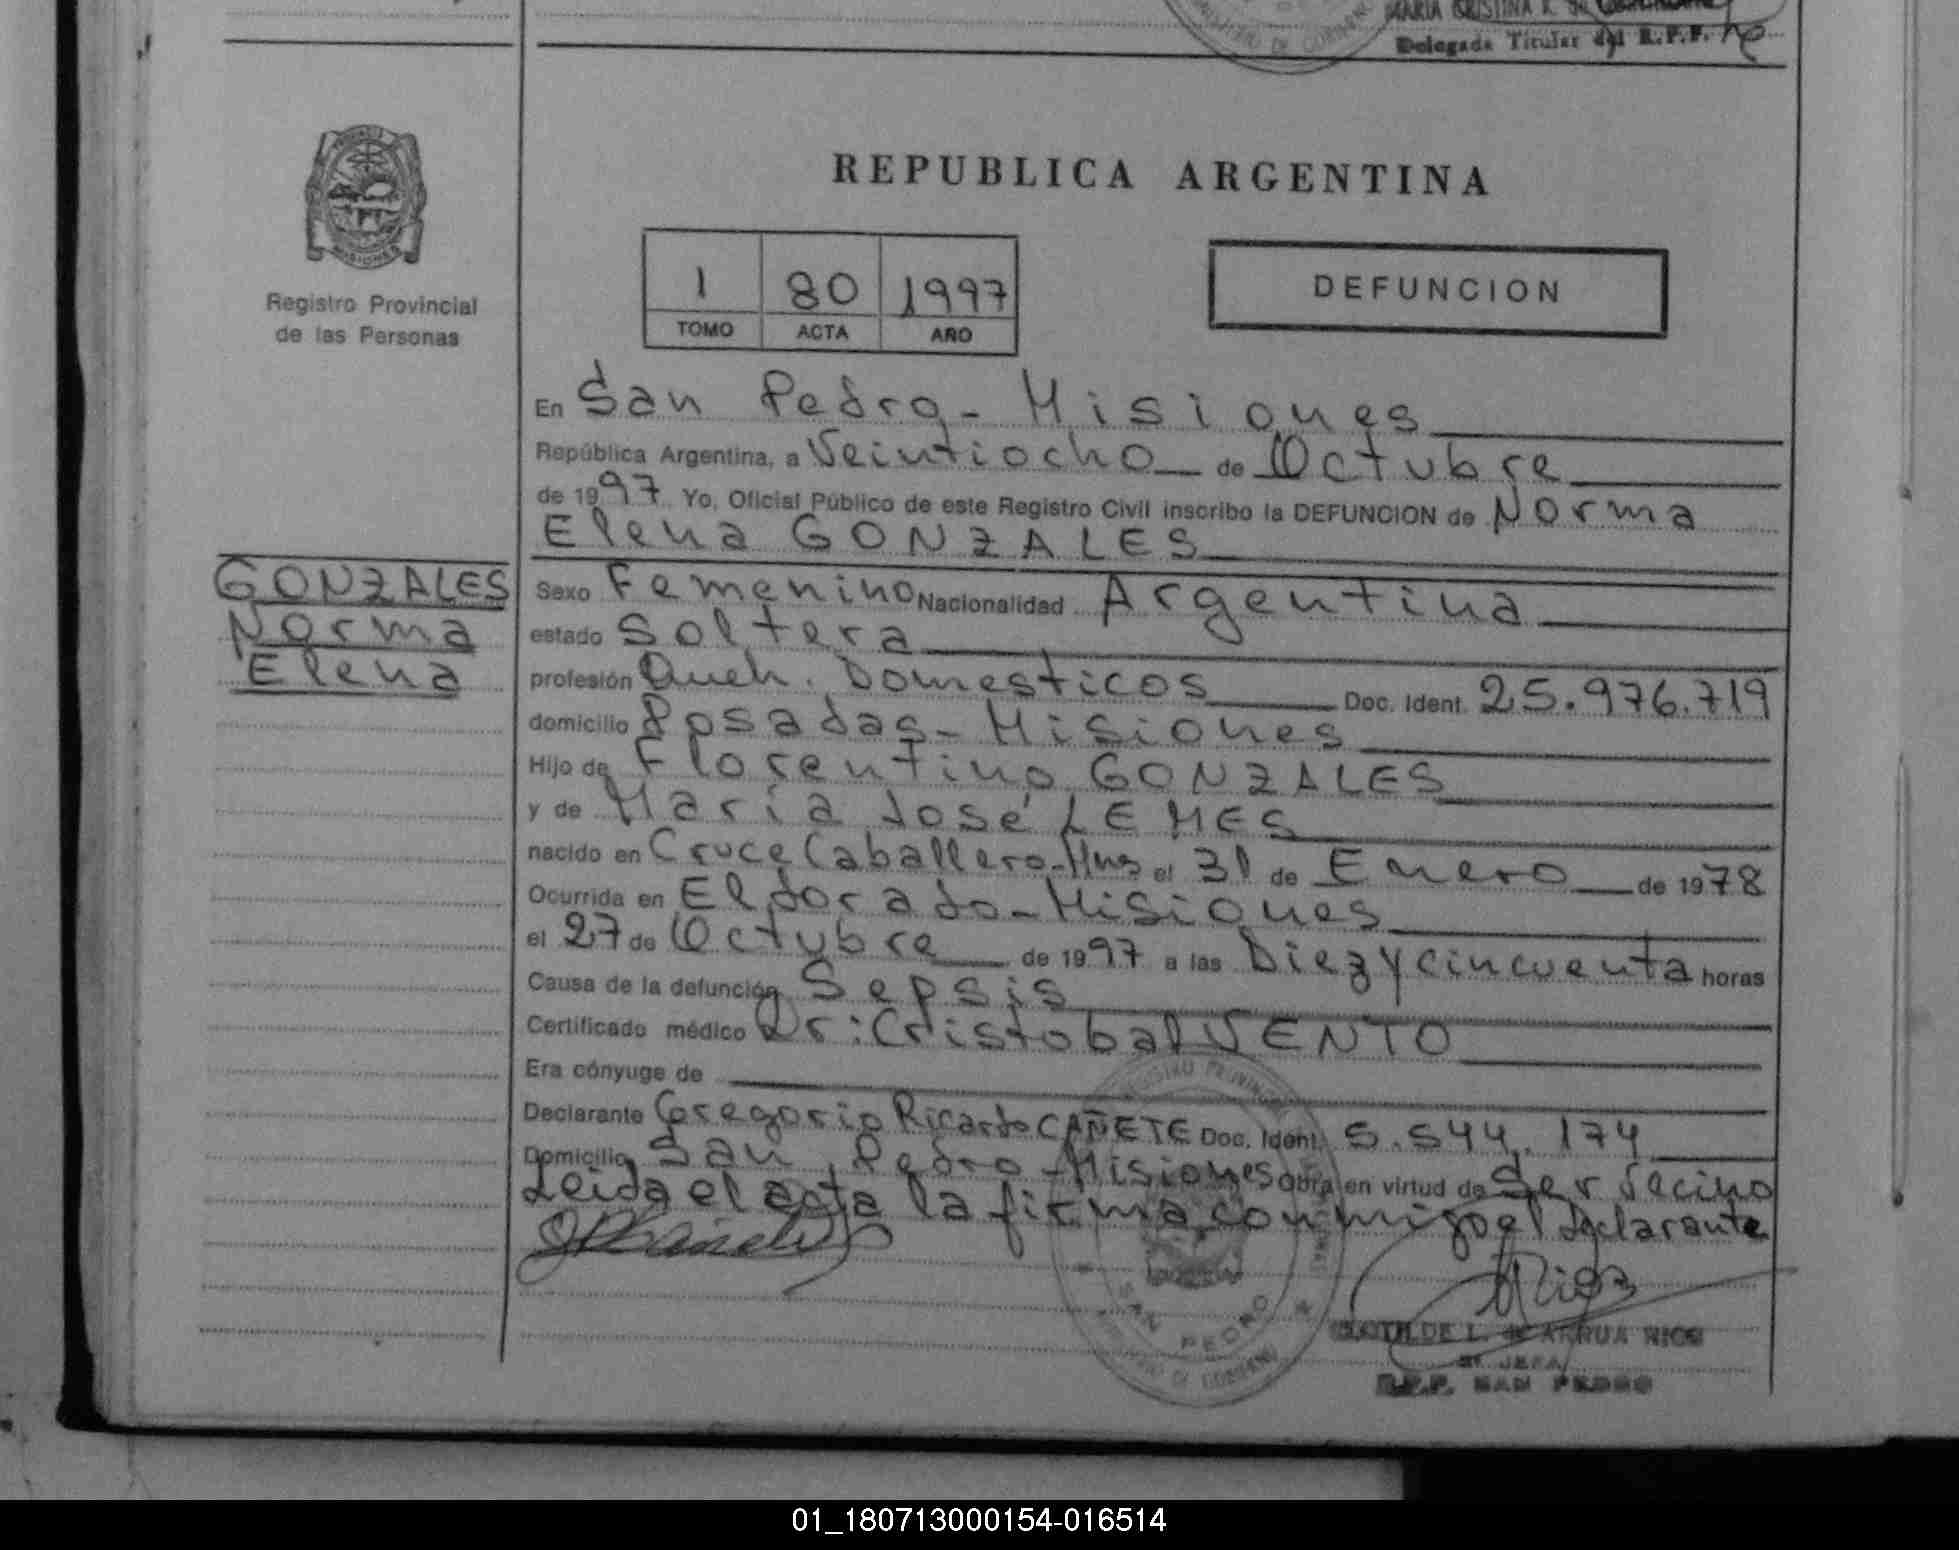 MARIA CRISTINA R. de
Delegada Titular del R.P.P.
PROVINCIA
MISIONES
Registro Provincial
de las Personas
REPUBLICA ARGENTINA
1 80 1997
TOMO ACTA AÑO
DEFUNCION
En San Pedro - Misiones
República Argentina, a Veintiocho de Octubre
de 1997 Yo, Oficial Público de este Registro Civil inscribo la DEFUNCION de Norma
Elena GONZALES
GONZALES
Norma
Elena
Sexo Femenino Nacionalidad Argentina
estado Soltera
profesión Queh. Domesticos Doc. Ident. 25.976.719
domicilio Posadas - Misiones
Hijo de Florentino GONZALES
y de María José LEMES
nacido en Cruce Caballero - Mns el 31 de Enero de 1978
Ocurrida en Eldorado - Misiones
el 27 de Octubre de 1997 a las Diez y cincuenta horas
Causa de la defunción Sepsis
Certificado médico Dr: Cristobal VENTO
Era cónyuge de
Declarante Gregorio Ricardo CAÑETE Doc. Ident. 5.544.174
Domicilio San Pedro - Misiones Obra en virtud de Ser Vecino
Leida el acta la firma conmigo el declarante
REGISTRO PROVINCIAL
SAN PEDRO
MINISTERIO DE GOBIERNO
CLOTILDE L. de ARRUA RIOS
JEFA
R.P.P. SAN PEDRO
01_180713000154-016514